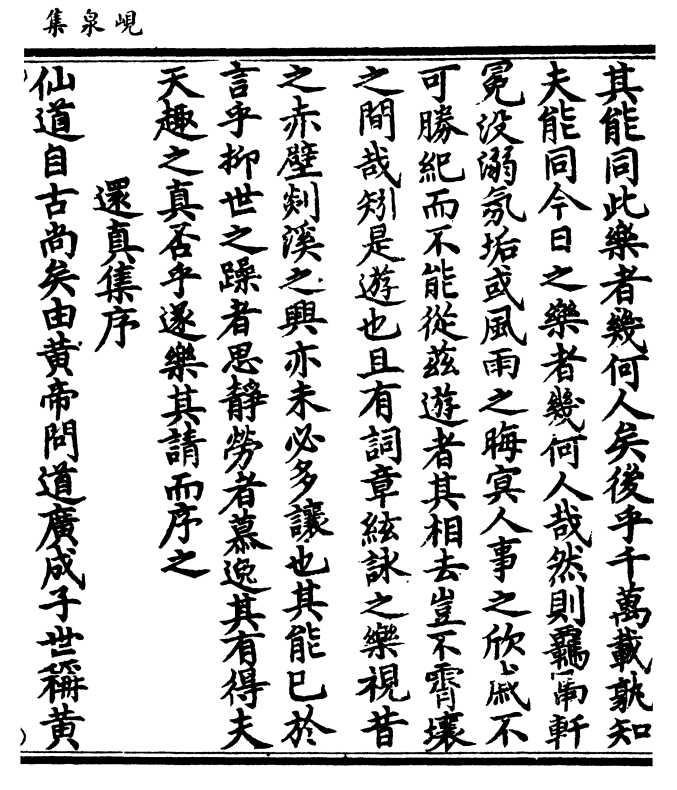 峴泉集
其能同此樂者幾何人矣後乎千萬載孰知
夫能同今日之樂者幾何人哉然則羈寓軒
冕没溺氛垢或風雨之晦冥人事之欣戚不
可勝紀而不能從茲遊者其相去豈不霄壤
之間哉矧是遊也且有詞章絃詠之樂視昔
之赤壁剡溪之興亦未必多讓也其能已於
言乎抑世之躁者思靜勞者慕逸其有得夫
天趣之真否乎遂樂其請而序之
還真集序
仙道自古尚矣由黄帝問道廣成子世稱黄